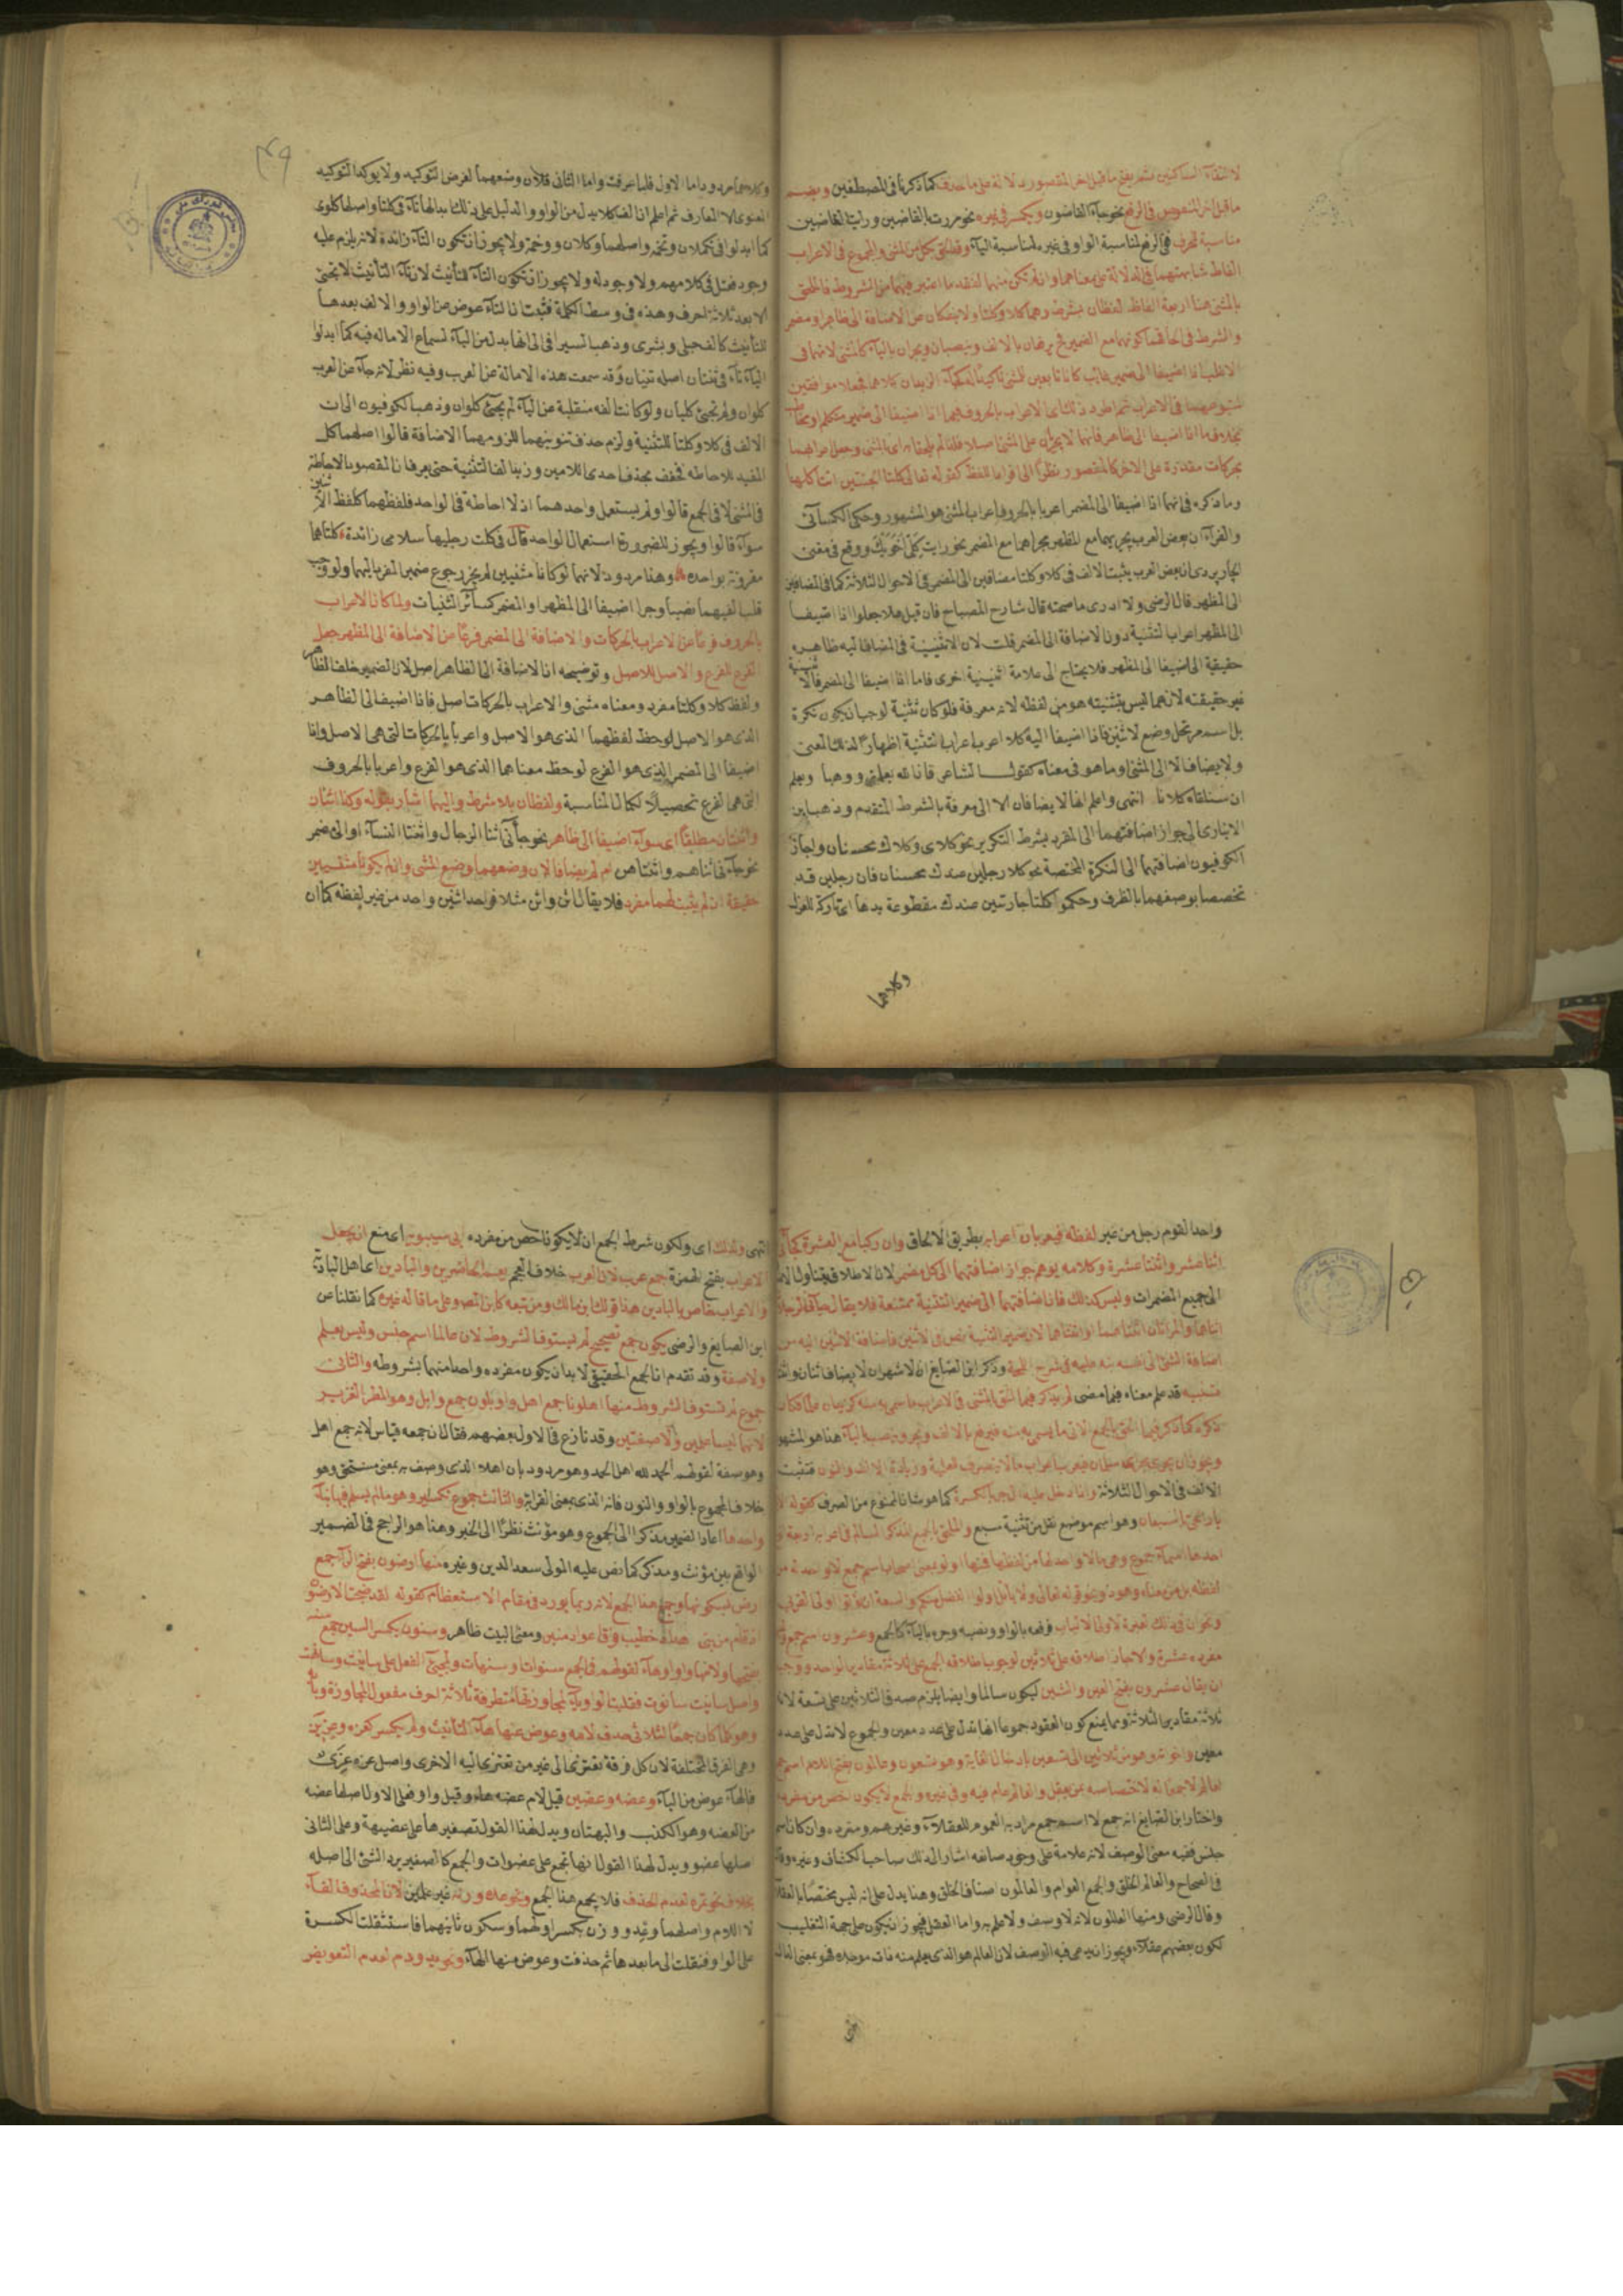 لالتقاء الساكنين ثم يفتح ما قبل اخر المقصور دلالة على ما حذف كما ذكرنا فى المصطفين ويضم
ما قبل اخر المنقوص فى الرفع نحو جاء القاضون ويكسر فى غيره نحو مررت بالقاضين ورايت القاضين
مناسبة للحرف ففى الرفع لمناسبة الواو وفى غيره لمناسبة الياء ويلحق بكل من المثنى والمجموع فى الاعراب
الفاظ شابهتهما فى الدلالة على معناهما وان لم تكن منهما لفقد ما اعتبر فيهما من الشروط فالملحق
بالمثنى هنا اربعة الفاظ لفظان بشرط وهما كلا وكلتا ولا ينفكان عن الاضافة الى ظاهر او مضمر
والشرط فى الحاقهما كونهما مع الضمير فيرفعان بالالف وينصبان ويجران بالياء كالمثنى لانهما فى
الاغلب اذا اضيفا الى ضمير غائب كانا تابعين لمثنى تاكيدا له كجاء الزيدان كلاهما فجعلا موافقين
لمتبوعهما فى الاعراب ثم اطرد ذلك اى الاعراب بالحروف فيهما اذا اضيفا الى ضمير متكلم او مخاطب
بخلاف ما اذا اضيفا الى ظاهر فانهما لا يجريان على المثنى اصلا فلذا لم يلحقا به اى المثنى وجعل اعرابهما
بحركات مقدرة على الاخر كالمقصور نظرا الى افراد اللفظ كقوله تعالى كلتا الجنتين اتت اكلها
وما ذكره فى انهما اذا اضيفا الى المضمر اعربا بالحروف اعراب المثنى هو المشهور وحكى الكسائى
والفراء ان بعض العرب يجريهما مع المظهر مجراهما مع المضمر نحو رايت كلى اخويك ووقع فى مغنى
الجاربردى ان بعض العرب يثبت الالف فى كلا وكلتا مضافين الى المضمر فى الاحوال الثلاثة كما فى المضافين
الى المظهر قال الرضى ولا ادرى ما صحته قال شارح المصباح فان قيل هلا جعلوا اذا اضيفا
الى المظهر اعراب التثنية دون الاضافة الى المضمر قلت لان الاثنينية فى المضاف اليه ظاهره
حقيقية اذا اضيفا الى المظهر فلا يحتاج الى علامة اثنينية اخرى فاما اذا اضيفا الى المضمر فالاثنينية
غير حقيقته لان هما ليس بتثنيته هو من لفظه لانه معرفة فلو كان تثنية لوجب ان يكون نكرة
بل اسم مرتجل وضع لاثنين فاذا اضيف اليه كلا اعرب اعراب التثنية اظهارا لذلك المعنى
ولا يضاف الا الى المثنى او ما هو فى معناه كقول الشاعر فان الله يعلمنى ووهبا ويعلم
ان سنلقاه كلانا انتهى واعلم انها لا يضافان الا الى معرفة بالشرط المتقدم وذهب ابن
الانبارى الى جواز اضافتهما الى المفرد بشرط التكرير نحو كلاى وكلاك محسنان واجاز
الكوفيون اضافتهما الى النكرة المختصة نحو كلا رجلين عندك محسنان فان رجلين قد
تخصصا بوصفهما بالظرف وحكموا كلتا جارتين عندك مقطوعة يدها اى تاركة للغزل
وكلاهما
وكلاهما مردود اما الاول فلما عرفت واما الثانى فلان وضعهما لغرض التوكيد ولا يوكد التوكيد
المعنوى الا المعارف ثم اعلم ان الف كلا بدل من الواو والدليل على ذلك ابدالها تاء فى كلتا واصلها كلوى
كما ابدلوا فى تكلان وتخمه واصلهما وكلان ووخمة ولا يجوز ان تكون التاء زائدة لانه يلزم عليه
وجود فعتل فى كلامهم ولا وجود له ولا يجوز ان تكون التاء للتأنيث لان تاء التأنيث لا تجئ
الا بعد ثلاثة احرف وهذه فى وسط الكلمة فثبت ان التاء عوض عن الواو والالف بعدها
للتأنيث كالف حبلى وبشرى وذهب السيرافى الى انها بدل من الياء لسماع الاماله فيه كما ابدلوا
الياء تاء فى ثنتان اصله ثنيان وقد سمعت هذه الامالة عن العرب وفيه نظر لانه جاء عن العرب
كلوان ولم تجئ كليان ولو كانت الفه منقلبة عن الياء لم يجئ كلوان وذهب الكوفيون الى ان
الالف فى كلا وكلتا للتثنية ولزم حذف تنوينهما للزومهما الاضافة قالوا اصلهما كل
المفيد للاحاطه فخفف بحذف احدى اللامين وزيد الف التثنية حتى يعرف ان المقصود الاحاطة
فى المثنى لا فى الجمع قالوا ولم يستعمل واحدهما اذ لا احاطة فى الواحد فلفظهما كلفظ الاثنين
سواء قالوا ويجوز للضرورة استعمال الواحد قال فى كلت رجليها سلامى زائدة كلتاهما
مقرونة بواحده وهذا مردود لانهما لو كانا مثنيين لم يجز رجوع ضمير المفرد اليهما ولوجب
قلب الفيهما نصبا وجرا اضيفا الى المظهر او المضمر كسائر المثنيات ولما كان الاعراب
بالحروف فرعا عن الاعراب بالحركات والاضافة الى المضمر فرعا عن الاضافة الى المظهر جعل
الفرع للفرع والاصل للاصل وتوضيحه ان الاضافة الى الظاهر اصل لان الضمير خلف الظاهر
ولفظ كلا وكلتا مفرد ومعناه مثنى والاعراب بالحركات اصل فاذا اضيفا الى الظاهر
الذى هو الاصل لوحظ لفظهما الذى هو الاصل واعربا بالحركات التى هى الاصل واذا
اضيفا الى المضمر الذى هو الفرع لوحظ معناهما الذى هو الفرع واعربا بالحروف
التى هى الفرع تحصيلا لكمال المناسبة ولفظان بلا شرط واليهما اشار بقوله وكذا اثنان
واثنتان مطلقا اى سواء اضيفا الى ظاهر نحو جائى اثنا الرجال واثنتا النساء او الى مضمر
نحو جاء فى اثناهم واثنتاهن ام لم يضافا لان وضعهما وضع المثنى وان لم يكونا مثنيين
حقيقة اذ لم يثبت لهما مفرد فلا يقال اثن واثن مثلا فواحد اثنين واحد من غير لفظه كما ان
واحد القوم رجل من غير لفظه فيعربان اعرابه بطريق الالحاق وان ركبا مع العشرة كجائى
اثنا عشر واثنتا عشرة وكلامه يوهم جواز اضافتهما الى كل مضمر لان الاطلاق يتناول
الى جميع المضمرات وليس كذلك فان اضافتهما الى ضمير التثنية ممتنعة فلا يقال جائى الرجلان
اثناهما والمراتان اثنتاهما او اثنتاهما لان ضمير التثنية نص فى الاثنين فاضافة الاثنين اليه من
اضافة الشئ الى نفسه نبه عليه فى شرح اللمحة وذكر ابن الصايغ ان الاشهر ان لا يضاف اثنان واثنتان
تنبيه قد علم معناه فيما مضى لم يذكر فيما الحق بالمثنى فى الاعراب ما سمى به منه كزيدان علما فكان
ذكره كما ذكر فيما الحق بالجمع الاتى ما يسمى به منه فيرفع بالالف ويجر وينصب بالياء هذا هو المشهور
ويجوز ان يجرى مجرى سلمان فيعرب اعراب ما لا ينصرف للعلمية وزيادة الالف والنون فتثبت
الالف فى الاحوال الثلاثة واذا دخل عليه ال جر بالكسرة كما هو شان الممنوع من الصرف كقوله
يا ديار الحى بالسبعان وهو اسم موضع نقل من تثنية سبع والملحق بالجمع المذكر السالم فى اعرابه اربعة
احدها اسماء جموع وهى ما لا واحد لها من لفظها فمنها اولو بمعنى اصحاب اسم جمع لا واحد له من
لفظه بل من معناه وهو ذو نحو قوله تعالى ولا ياتل اولو الفضل منكم والسعة ان يؤتوا اولى القربى
ونحو ان فى ذلك لعبرة لاولى الالباب فرفعه بالواو ونصبه وجره بالياء كالجمع وعشرون اسم جمع
مفرده عشرة والا لجاز اطلاقه على ثلاثين لوجوب اطلاقه الجمع على ثلاثة مقادير الواحد ووجب
ان يقال عشرون بفتح العين والشين ليكون سالما وايضا يلزم صدق الثلاثين على تسعة لانها
ثلاثة مقادير الثلاثة ومما يمنع كون العقود جموعا انها تدل على عدد معين والجموع لا تدل على عدد
معين واخواته وهو من ثلاثين الى تسعين بادخال الغاية وهو تسعون وعالمون بفتح اللام اسم جمع
لعالم لا جمعا له لاختصاصه بمن يعقل والعالم عام فيه وفى غيره والجمع لا يكون اخص من مفرده
واختار ابن الصايغ انه جمع لا اسم جمع مراد به العموم للعقلاء وغيرهم ومفرده وان كان اسم
جنس ففيه معنى الوصف لانه علامة على وجود صانعه اشار الى ذلك صاحب الكشاف وغيره وقال
فى الصحاح والعالم الخلق والجمع العوالم والعالمون اصناف الخلق وهذا يدل على انه ليس مختصا بالعقلاء
وقال الرضى ومنها العالمون لانه لا وصف ولا علم به واما العقل فيجوز ان يكون على جهة التغليب
لكون بعضهم عقلاء ويجوز انه يدعى فيه الوصف لان العالم هو الذى يعلم منه ذات موجده فهو بمعنى الدال
انتهى ولذلك اى ولكون شرط الجمع ان لا يكون اخص من مفرده ابى سيبويه اى منع ان يجعل
الاعراب بفتح الهمزة جمع عرب لان العرب خلاف العجم يعم الحاضرين والبادين اى اهل البادية
والاعراب خاص بالبادين هذا قول ابن مالك ومن تبعه كابن المصنف وعلى ما قاله غيره كما نقلنا عن
ابن الصايغ والرضى يكون جمع تصحيح لم يستوف الشروط لان عالما اسم جنس وليس بعلم
ولا صفة وقد تقدم ان الجمع الحقيقى لا بد ان يكون مفرده واحدا منهما بشروطه والثانى
جموع لم تستوف الشروط منها اهلون جمع اهل ووابلون جمع وابل وهو المطر الغزير
لانهما ليسا علمين ولا صفتين وقد نازع فى الاول بعضهم فقال ان جمعه قياس لانه جمع اهل
وهو صفة لقولهم الحمد لله اهل الحمد وهو مردود بان اهلا الذى وصف به بمعنى مستحق وهو
خلاف المجموع بالواو والنون فانه الذى بمعنى القرابة والثالث جموع تكسير وهو ما لم يسلم فيها بناء
واحدها اعاد الضمير مذكرا الى الجموع وهو مؤنث نظرا الى الخبر وهذا هو الراجح فى الضمير
الواقع بين مؤنث ومذكر كما نص عليه المولى سعد الدين وغيره منها ارضون بفتح الراء جمع
ارض بسكونها وجمع هذا الجمع لانه ربما يورد فى مقام الاستعظام كقوله لقد ضجت الارضون
اذ قام من بنى هداد خطيب فوق اعواد منبر ومعنى البيت ظاهر وسنون بكسر السين جمع سنه
بفتحها ولامها واو او هاء لقولهم فى الجمع سنوات وسنهات ولمجئ الفعل على سانيت وسانهت
واصل سانيت سانوت فقلبت الواو ياء لمجاوزتها متطرفة ثلاثة احرف مفعول المجاوزة وبابه
وهو كلما كان جمعا لثلاثى حذف لامه وعوض عنها هاء التأنيث ولم يكسر كعزه وعزين
وهى الفرق المختلفة لان كل فرقة تعتزى الى غير من تعتزى اليه الاخرى واصل عزه عزى
فالهاء عوض من الياء وعضه وعضين قيل لام عضه هاء وقيل واو فعلى الاول اصلها عضهه
من العضه وهو الكذب والبهتان ويدل لهذا القول تصغيرها على عضيهة وعلى الثانى
اصلها عضو ويدل لهذا القول انها تجمع على عضوات والجمع كالتصغير يرد الشئ الى اصله
بخلاف نحو تمره لعدم الحذف فلا يجمع هذا الجمع ونحو عدة وزنة غير علمين لان المحذوف الفاء
لا اللام واصلهما وعد ووزن بكسر اولهما وسكون ثانيهما فاستثقلت الكسرة
على الواو فنقلت الى ما بعدها ثم حذفت وعوض منها الهاء ونحو يد ودم لعدم التعويض